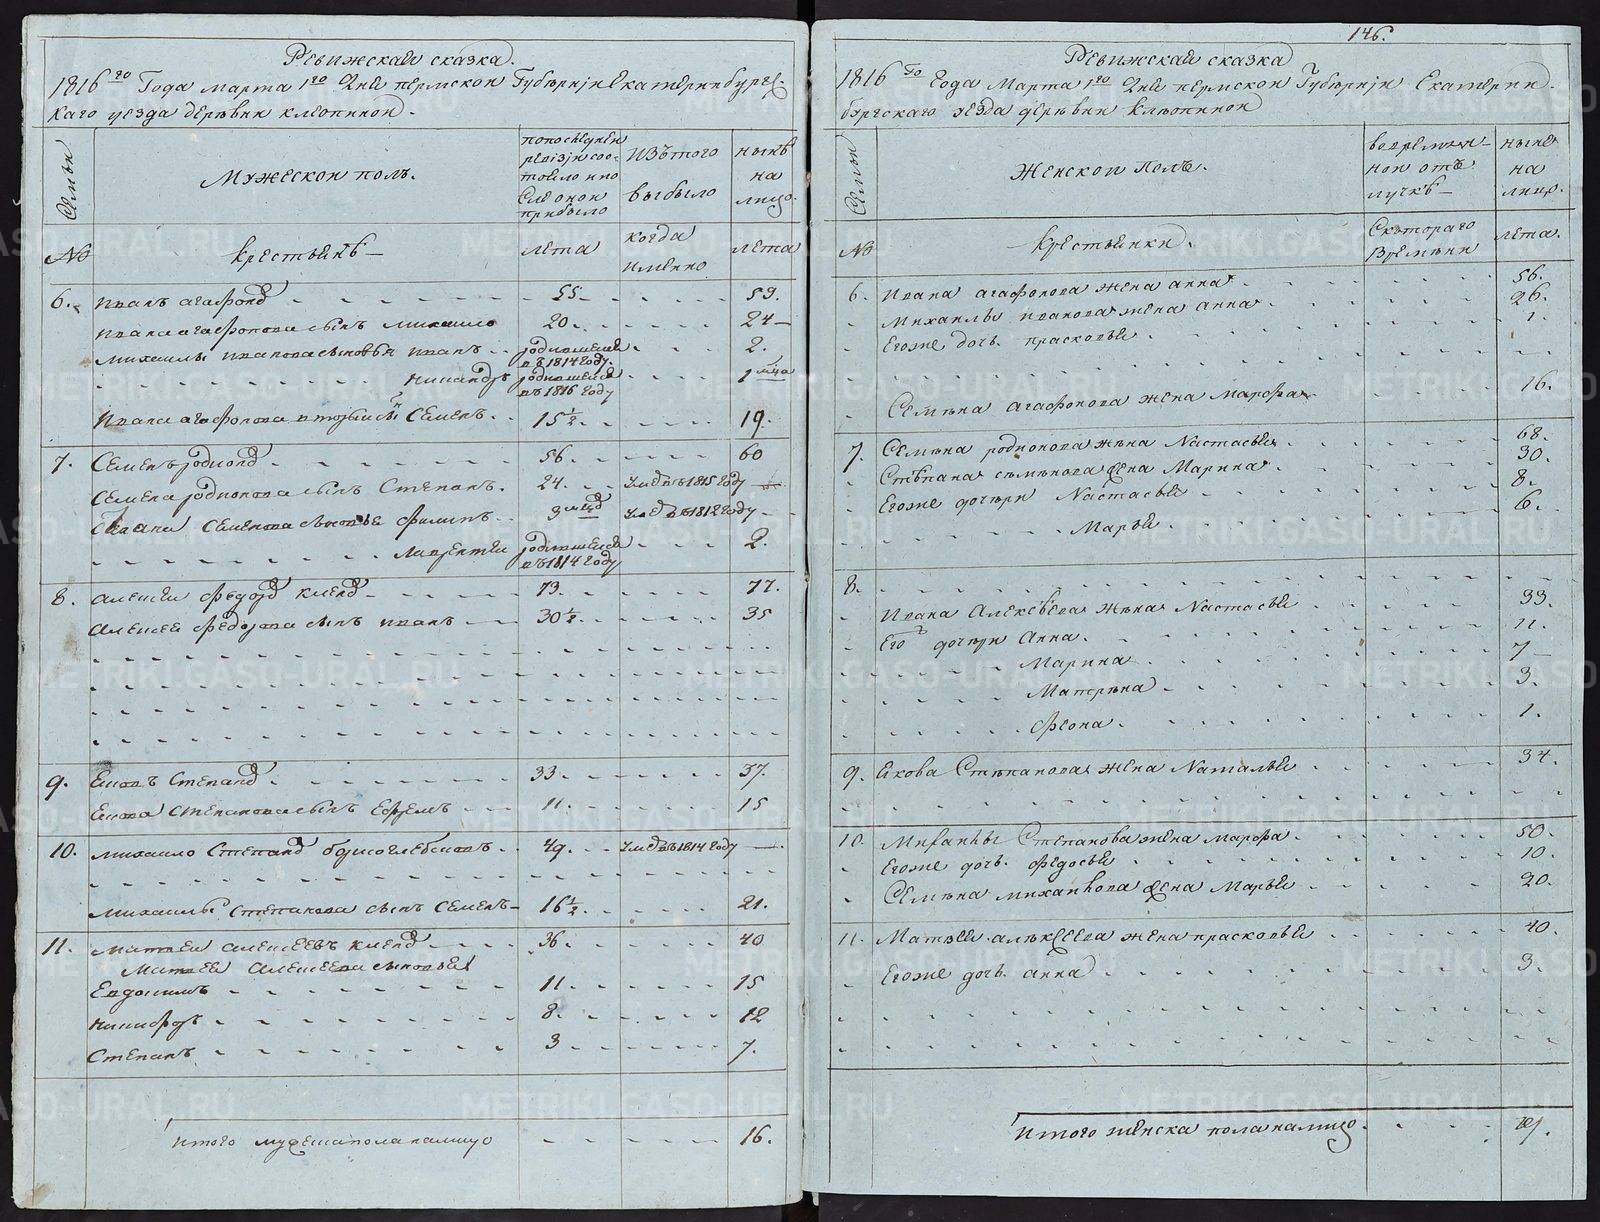 Ревижская сказка.
1816го Года марта 1го Дня пермской Губернїи Екатеринбургс-
каго уезда деревни клюпиной.
Семьи
Мужеской полъ.
попоследней ревизiи сос- тояло ипо сле оной прибыло
Изътого выбыло
нынѣ на лицо.
№
крестьянъ
лета
когда имянно
лета
6. Иванъ агафонов 55 59.
Ивана агафонова сынъ михаило 20. 24
михаилы иванова сыновья иванъ родившейся въ 1814 Году. 2.
никандръ родившейся въ 1816 Году 1 мца
Ивана агафонова вторый сынъ Семенъ. 15½. 19.
7. Семенъ родионов 56. 60
Семена родионова сынъ Степанъ. 24. умевъ 1815 Году
Степана Семенова сыновья филипъ 3 месецов умевъ 1812 Году
Лаврентей родившейся въ 1814 Году 2.
8. алексей федоров клепов 73. 77.
Алексея федорова сынъ иванъ 30½. 35
9. Яковъ Степанов 33. 37.
Якова Степанова сынъ Ефремъ 11. 15
10. михаило Степанов борисоглебсковъ. 49. умевъ 1814 Году
михаилы Степанова сынъ Семенъ 16½. 21.
11. матвей алексеевъ клепов 36. 40
Матвея Алексеева сыновья
Евдокимъ 11. 15
никифоръ 8. 12
Степанъ 3 7.
Итого мужеска пола налицо 16.
146.
Ревижская сказка
1816го Года Марта 1го Дня пермской Губернїи Екатерин-
бургскаго уезда деревни клюпиной
Семьи
Женской Полъ.
вовремян- ной отъ лучкѣ
ныне на лицо.
№
крестьянки.
Скотораго Времяни
лета.
6. Ивана агафонова жена анна 56.
михаилы иванова жена анна 26.
Егоже дочь прасковья 1.
Семѣна агафонова жена марфа 16.
7. Семѣна родионова жѣна Настасья 68.
Стѣпана съмѣнова жена Марина 30.
Егоже дочѣри Настасья 8.
Марья. 6.
8.
Ивана Алексѣева жѣна Настасья 33.
Его дочѣри Анна. 11.
Марина 7
Матрѣна 3.
феона. 1.
9. Якова Стѣпанова жена Наталья 34.
10. Михаилы Степанова жена марфа. 50.
Егоже дочь федосья 10.
Семѣна михаилова жена Марья 20.
11. Матвея алѣксеева жена прасковья 40.
Егоже дочь анна 3.
Итого женска пола налицо.
METRIKI.GASO-URAL.RU